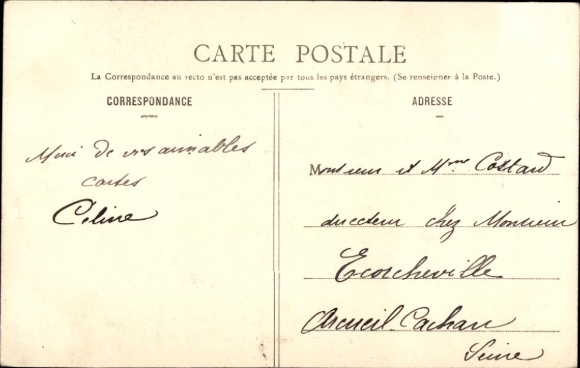 CARTE POSTALE
La Correspondance au recto n'est pas acceptée par tous les pays étrangers. (Se renseigner à la Poste.)
CORRESPONDANCE
ADRESSE
Merci de vos aimables
cartes
Céline
Monsieur et Mme Costard
directeur chez Monsieur
Ecorcheville
Arcueil-Cachan
Seine